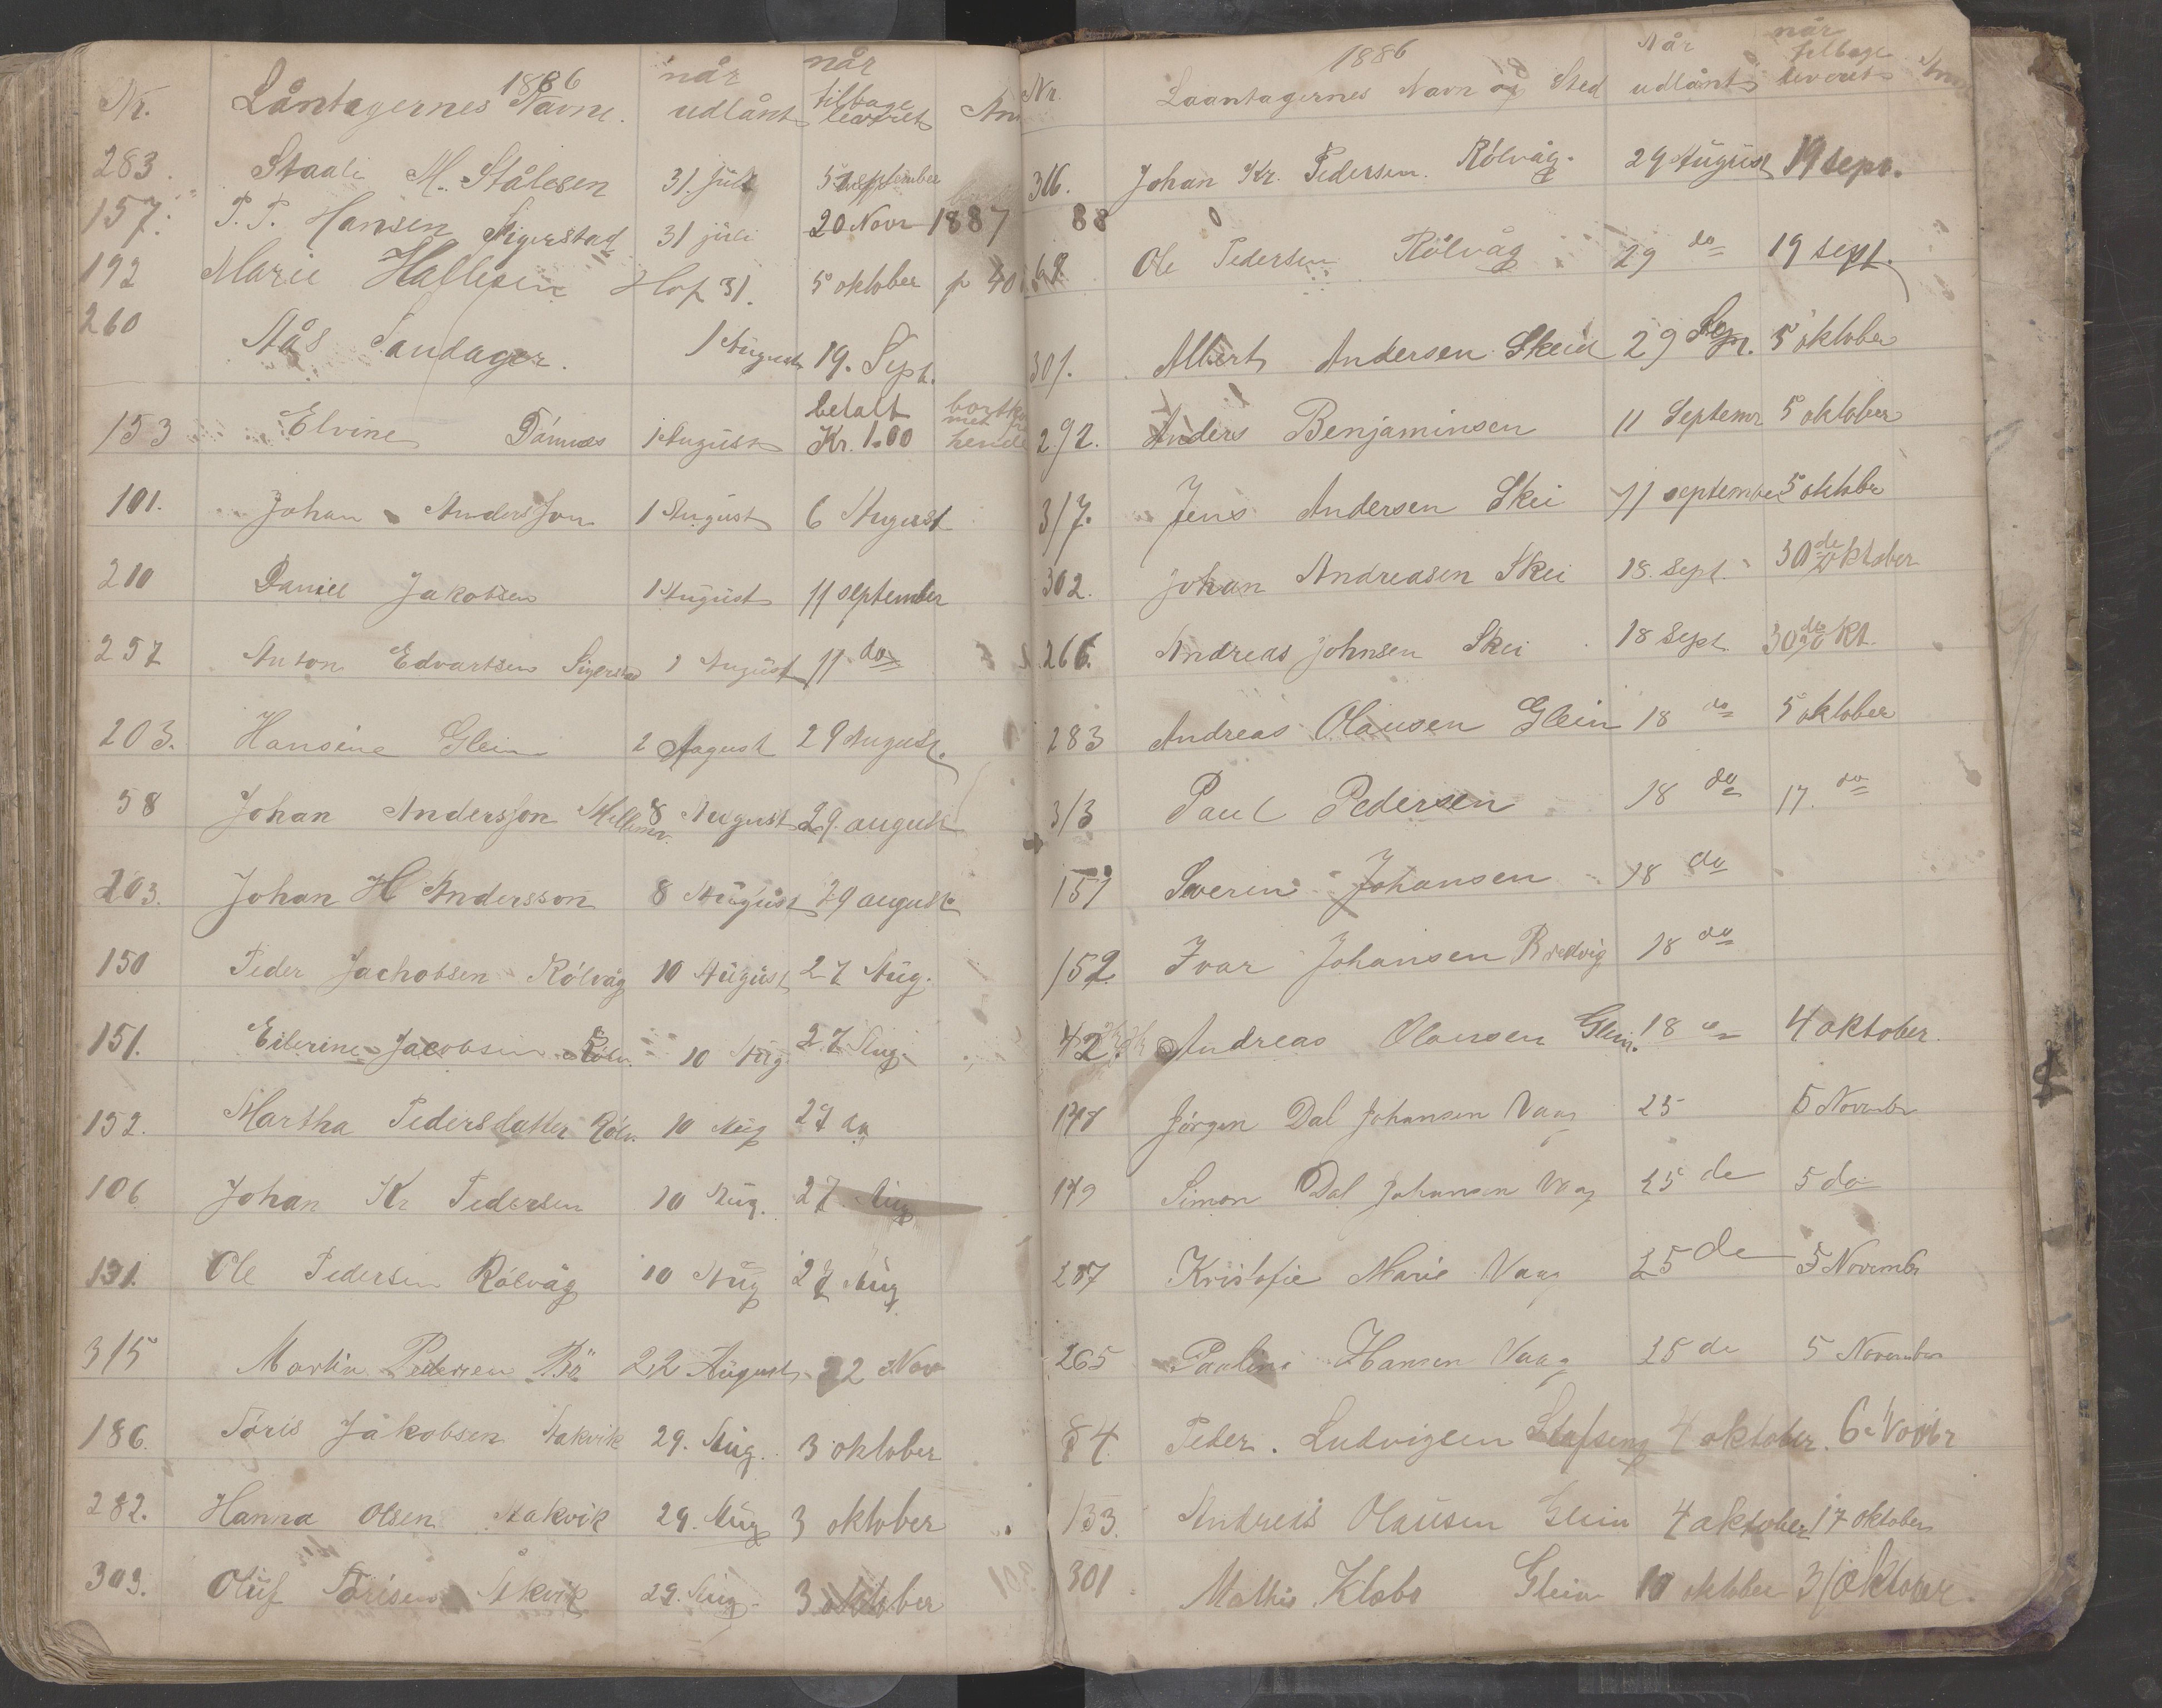 1886
Nr. Låntagernes Navne. når udlånt når tilbage leveret An
283. Staali M. Stålesen 31. juli 5 september
157. P. P. Hansen Sigerstad 31 juli 20 Novr 1887
192 Marie Hallesen Hof 31. 5 oktober p 40
260 Aås Sandager. 1 August 19. Sept.
153 Elvine Dønnæs 1 August betalt Kr. 1.00
101. Johan Andersson 1 August 6 August
210 Daniel Jakobsen 1 August 11 september
257 Anton Edvartsen Sigerstad 1 August 11 do
203. Hansine Glein 2 August 29 August.
58 Johan Andersson 8 August 29. august
203. Johan H Andersson 8 August 29 august
150 Peder Jachobsen Rölvåg 10 August 27 Aug.
151. Eilerine Jacobsen Rölv. 10 Aug. 27 Aug.
152. Martha Pedersdatter Rölv. 10 Aug 27
106 Johan Kr Pedersen 10 Aug. 27 Aug
131. Ole Pedersen Rölvåg 10 Aug 27 Aug
315 Martin Pedersen Bö 22 August 22 Nov
186. Töris Jakobsen Åakvik 29. Aug. 3 oktober
282. Hanna Olsen Åakvik 29. Aug 3 oktober
303. Oluf Törisen Åkvik 29. Aug. 3 oktober
1886
Nr. Laantagernes Navn og Sted Når udlånt når tilbage leveret Anm
316. Johan Kr. Pedersen. Rölvåg. 29 August 19 sept.
88
68 Ole Pedersen Rölvåg 29 do 19 sept.
301. Albert Andersen Skeid 29 5 oktober
292. Anders Benjaminsen 11 Septemr 5 oktober
317. Jens Andersen Skei 11 september 5 oktobr
302. Johan Andreasen Skei 18. Sept. 30 de oktober
266. Andreas Johnsen Skei 18 Sept. 30 de okt.
283 Andreas Olausen Glein 18 do 5 oktober
313 Paul Pedersen 18 do 17. do
151 Severin Johansen 18 do
152. Ivar Johansen Bredvig 18 do
42. Andreas Olausen Glein. 18 do 4 oktober.
178 Jörgen Dal Johansen Vaag 25 5 November
179 Simon Dal Johansen Vaag 25 de 5 do
287 Kristofie Marie Vaag 25 de 5 Novembr
265 Pauline Hansen Vaag 25 de 5 November
84. Peder. Ludvigsen 4 oktober. 6 Novbr
133. Andreas Olausen Glein 4 oktober 17 oktober
301 Mathis Klæbo Glein 10 oktober 31 Oktober.